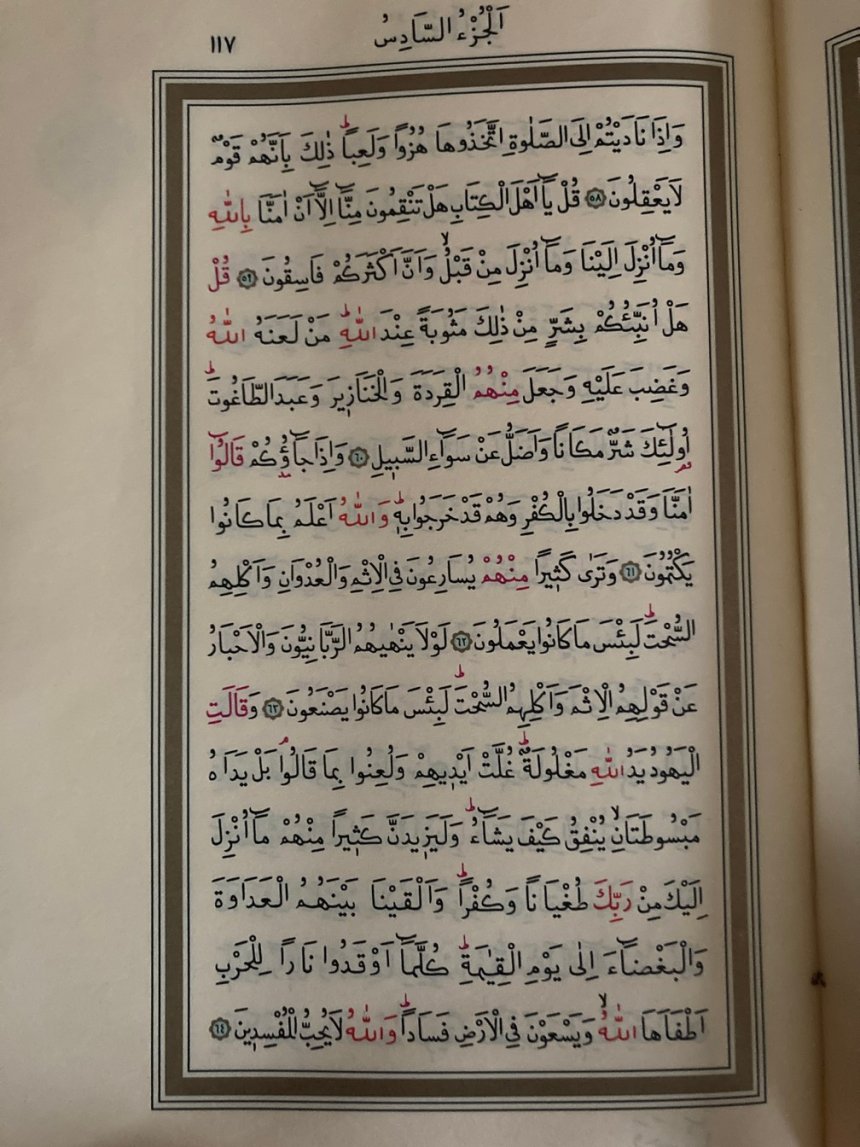 اَلْجُزْءُ السَّادِسُ
١١٧
وَاِذَا نَادَيْتُمْ اِلَى الصَّلٰوةِ اتَّخَذُوهَا هُزُواً وَلَعِباًۜ ذٰلِكَ بِاَنَّهُمْ قَوْمٌ
لَا يَعْقِلُونَ ﴿٥٨﴾ قُلْ يَٓا اَهْلَ الْكِتَابِ هَلْ تَنْقِمُونَ مِنَّٓا اِلَّٓا اَنْ اٰمَنَّا بِاللّٰهِ
وَمَٓا اُنْزِلَ اِلَيْنَا وَمَٓا اُنْزِلَ مِنْ قَبْلُۙ وَاَنَّ اَكْثَرَكُمْ فَاسِقُونَ ﴿٥٩﴾ قُلْ
هَلْ اُنَبِّئُكُمْ بِشَرٍّ مِنْ ذٰلِكَ مَثُوبَةً عِنْدَ اللّٰهِۜ مَنْ لَعَنَهُ اللّٰهُ
وَغَضِبَ عَلَيْهِ وَجَعَلَ مِنْهُمُ الْقِرَدَةَ وَالْخَنَازٖيرَ وَعَبَدَ الطَّاغُوتَۜ
اُو۬لٰٓئِكَ شَرٌّ مَكَاناً وَاَضَلُّ عَنْ سَوَٓاءِ السَّبٖيلِ ﴿٦٠﴾ وَاِذَا جَٓاؤُ۫كُمْ قَالُٓوا
اٰمَنَّا وَقَدْ دَخَلُوا بِالْكُفْرِ وَهُمْ قَدْ خَرَجُوا بِهٖۜ وَاللّٰهُ اَعْلَمُ بِمَا كَانُوا
يَكْتُمُونَ ﴿٦١﴾ وَتَرٰى كَثٖيراً مِنْهُمْ يُسَارِعُونَ فِي الْاِثْمِ وَالْعُدْوَانِ وَاَكْلِهِمُ
السُّحْتَۜ لَبِئْسَ مَا كَانُوا يَعْمَلُونَ ﴿٦٢﴾ لَوْلَا يَنْهٰيهُمُ الرَّبَّانِيُّونَ وَالْاَحْبَارُ
عَنْ قَوْلِهِمُ الْاِثْمَ وَاَكْلِهِمُ السُّحْتَۜ لَبِئْسَ مَا كَانُوا يَصْنَعُونَ ﴿٦٣﴾ وَقَالَتِ
الْيَهُودُ يَدُ اللّٰهِ مَغْلُولَةٌۜ غُلَّتْ اَيْدٖيهِمْ وَلُعِنُوا بِمَا قَالُواۢ بَلْ يَدَاهُ
مَبْسُوطَتَانِۙ يُنْفِقُ كَيْفَ يَشَٓاءُۜ وَلَيَزٖيدَنَّ كَثٖيراً مِنْهُمْ مَٓا اُنْزِلَ
اِلَيْكَ مِنْ رَبِّكَ طُغْيَاناً وَكُفْراًۜ وَاَلْقَيْنَا بَيْنَهُمُ الْعَدَاوَةَ
وَالْبَغْضَٓاءَ اِلٰى يَوْمِ الْقِيٰمَةِۜ كُلَّمَٓا اَوْقَدُوا نَاراً لِلْحَرْبِ
اَطْفَاَهَا اللّٰهُۙ وَيَسْعَوْنَ فِي الْاَرْضِ فَسَاداًۜ وَاللّٰهُ لَا يُحِبُّ الْمُفْسِدٖينَ ﴿٦٤﴾